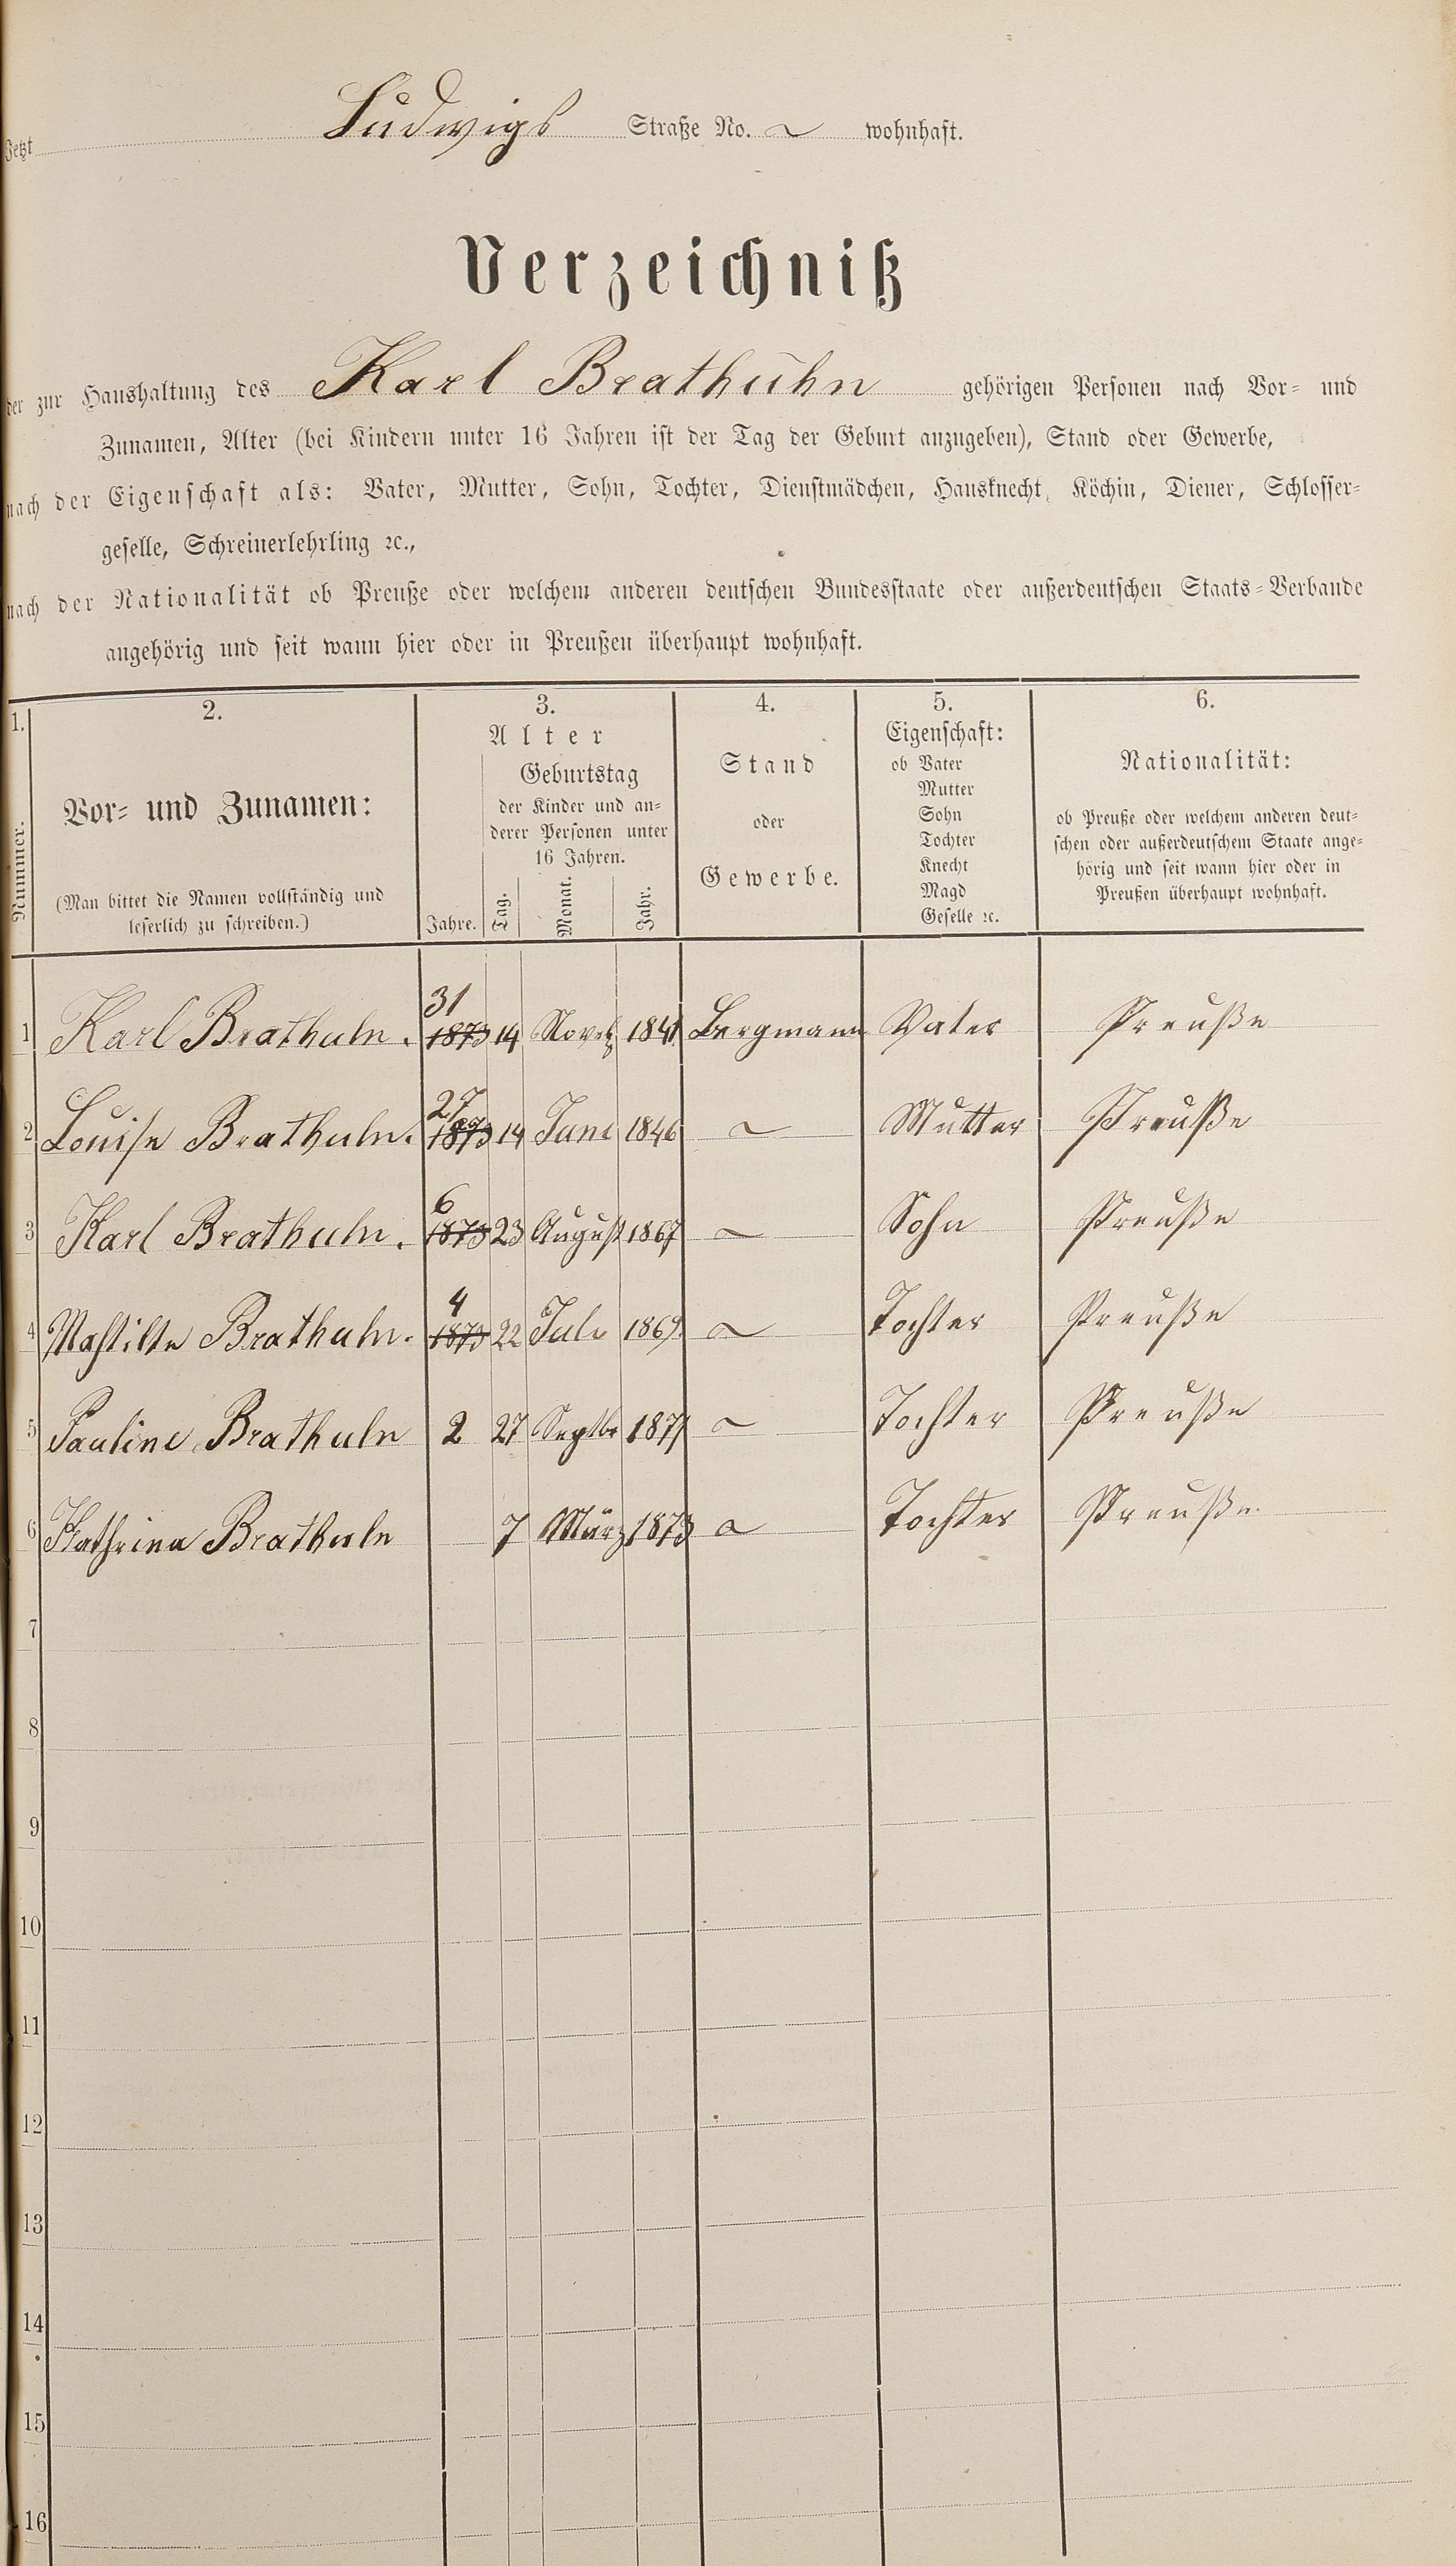 Jetzt Ludwigs Straße No. wohnhaft.
Verzeichniß
der zur Haushaltung des Karl Brathuhn gehörigen Personen nach Vor- und
Zunamen, Alter (bei Kindern unter 16 Jahren ist der Tag der Geburt anzugeben), Stand oder Gewerbe,
nach der Eigenschaft als: Vater, Mutter, Sohn, Tochter, Dienstmädchen, Hausknecht, Köchin, Diener, Schlosser-
geselle, Schreinerlehrling ꝛc.,
nach der Nationalität ob Preuße oder welchem anderen deutschen Bundesstaate oder außerdeutschen Staats-Verbande
angehörig und seit wann hier oder in Preußen überhaupt wohnhaft.
1. 2. 3. 4. 5. 6.
Nummer.
Vor- und Zunamen:
(Man bittet die Namen vollständig und
leserlich zu schreiben.)
Alter
Geburtstag
der Kinder und an-
derer Personen unter
16 Jahren.
Jahre. Tag. Monat. Jahr.
Stand
oder
Gewerbe.
Eigenschaft:
ob Vater
Mutter
Sohn
Tochter
Knecht
Magd
Geselle ꝛc.
Nationalität:
ob Preuße oder welchem anderen deut-
schen oder außerdeutschem Staate ange-
hörig und seit wann hier oder in
Preußen überhaupt wohnhaft.
31
1 Karl Brathuhn. 1873 14 Novb 1841 Bergmann Vater Preuße
27
2 Louise Brathuhn. 1873 14 Juni 1846 Mutter Preuße
6
3 Karl Brathuhn. 1873 23 August 1867 Sohn Preuße
4
4 Brathuhn. 1873 22 Juli 1869 Tochter Preuße
5 Pauline Brathuhn 2 27 Septbr 1871 Tochter Preuße
6 Kathrina Brathuhn 7 März 1873 Tochter Preuße
7
8
9
10
11
12
13
14
15
16